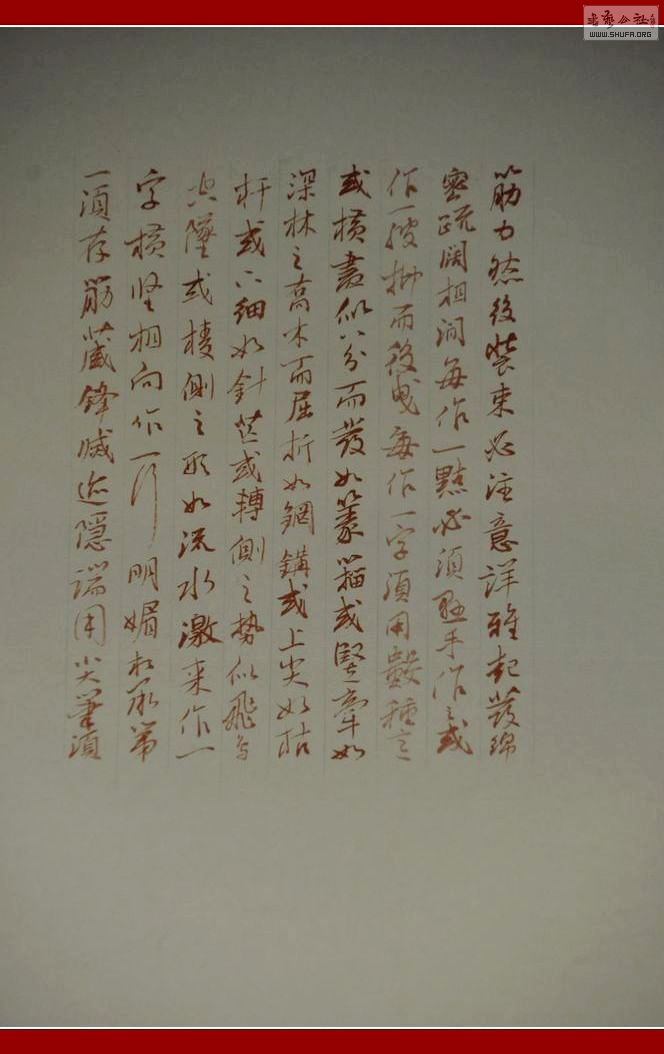 筋力然後裝束必注意詳雅起發綿
密疏闊相間每作一點必須懸手作之或
作一波抑而後曳每作一字須用數種之
或橫畫似八分而發如篆籀或竪牽如
深林之喬木而屈折如鋼鉤或上尖如枯
杆或下細如針芒或轉側之勢似飛鳥
空墜或棱側之形如流水激來作一
字橫竖相向作一行明媚相承第
一須存筋藏鋒滅迹隱端用尖筆須
WWW.SHUFA.ORG